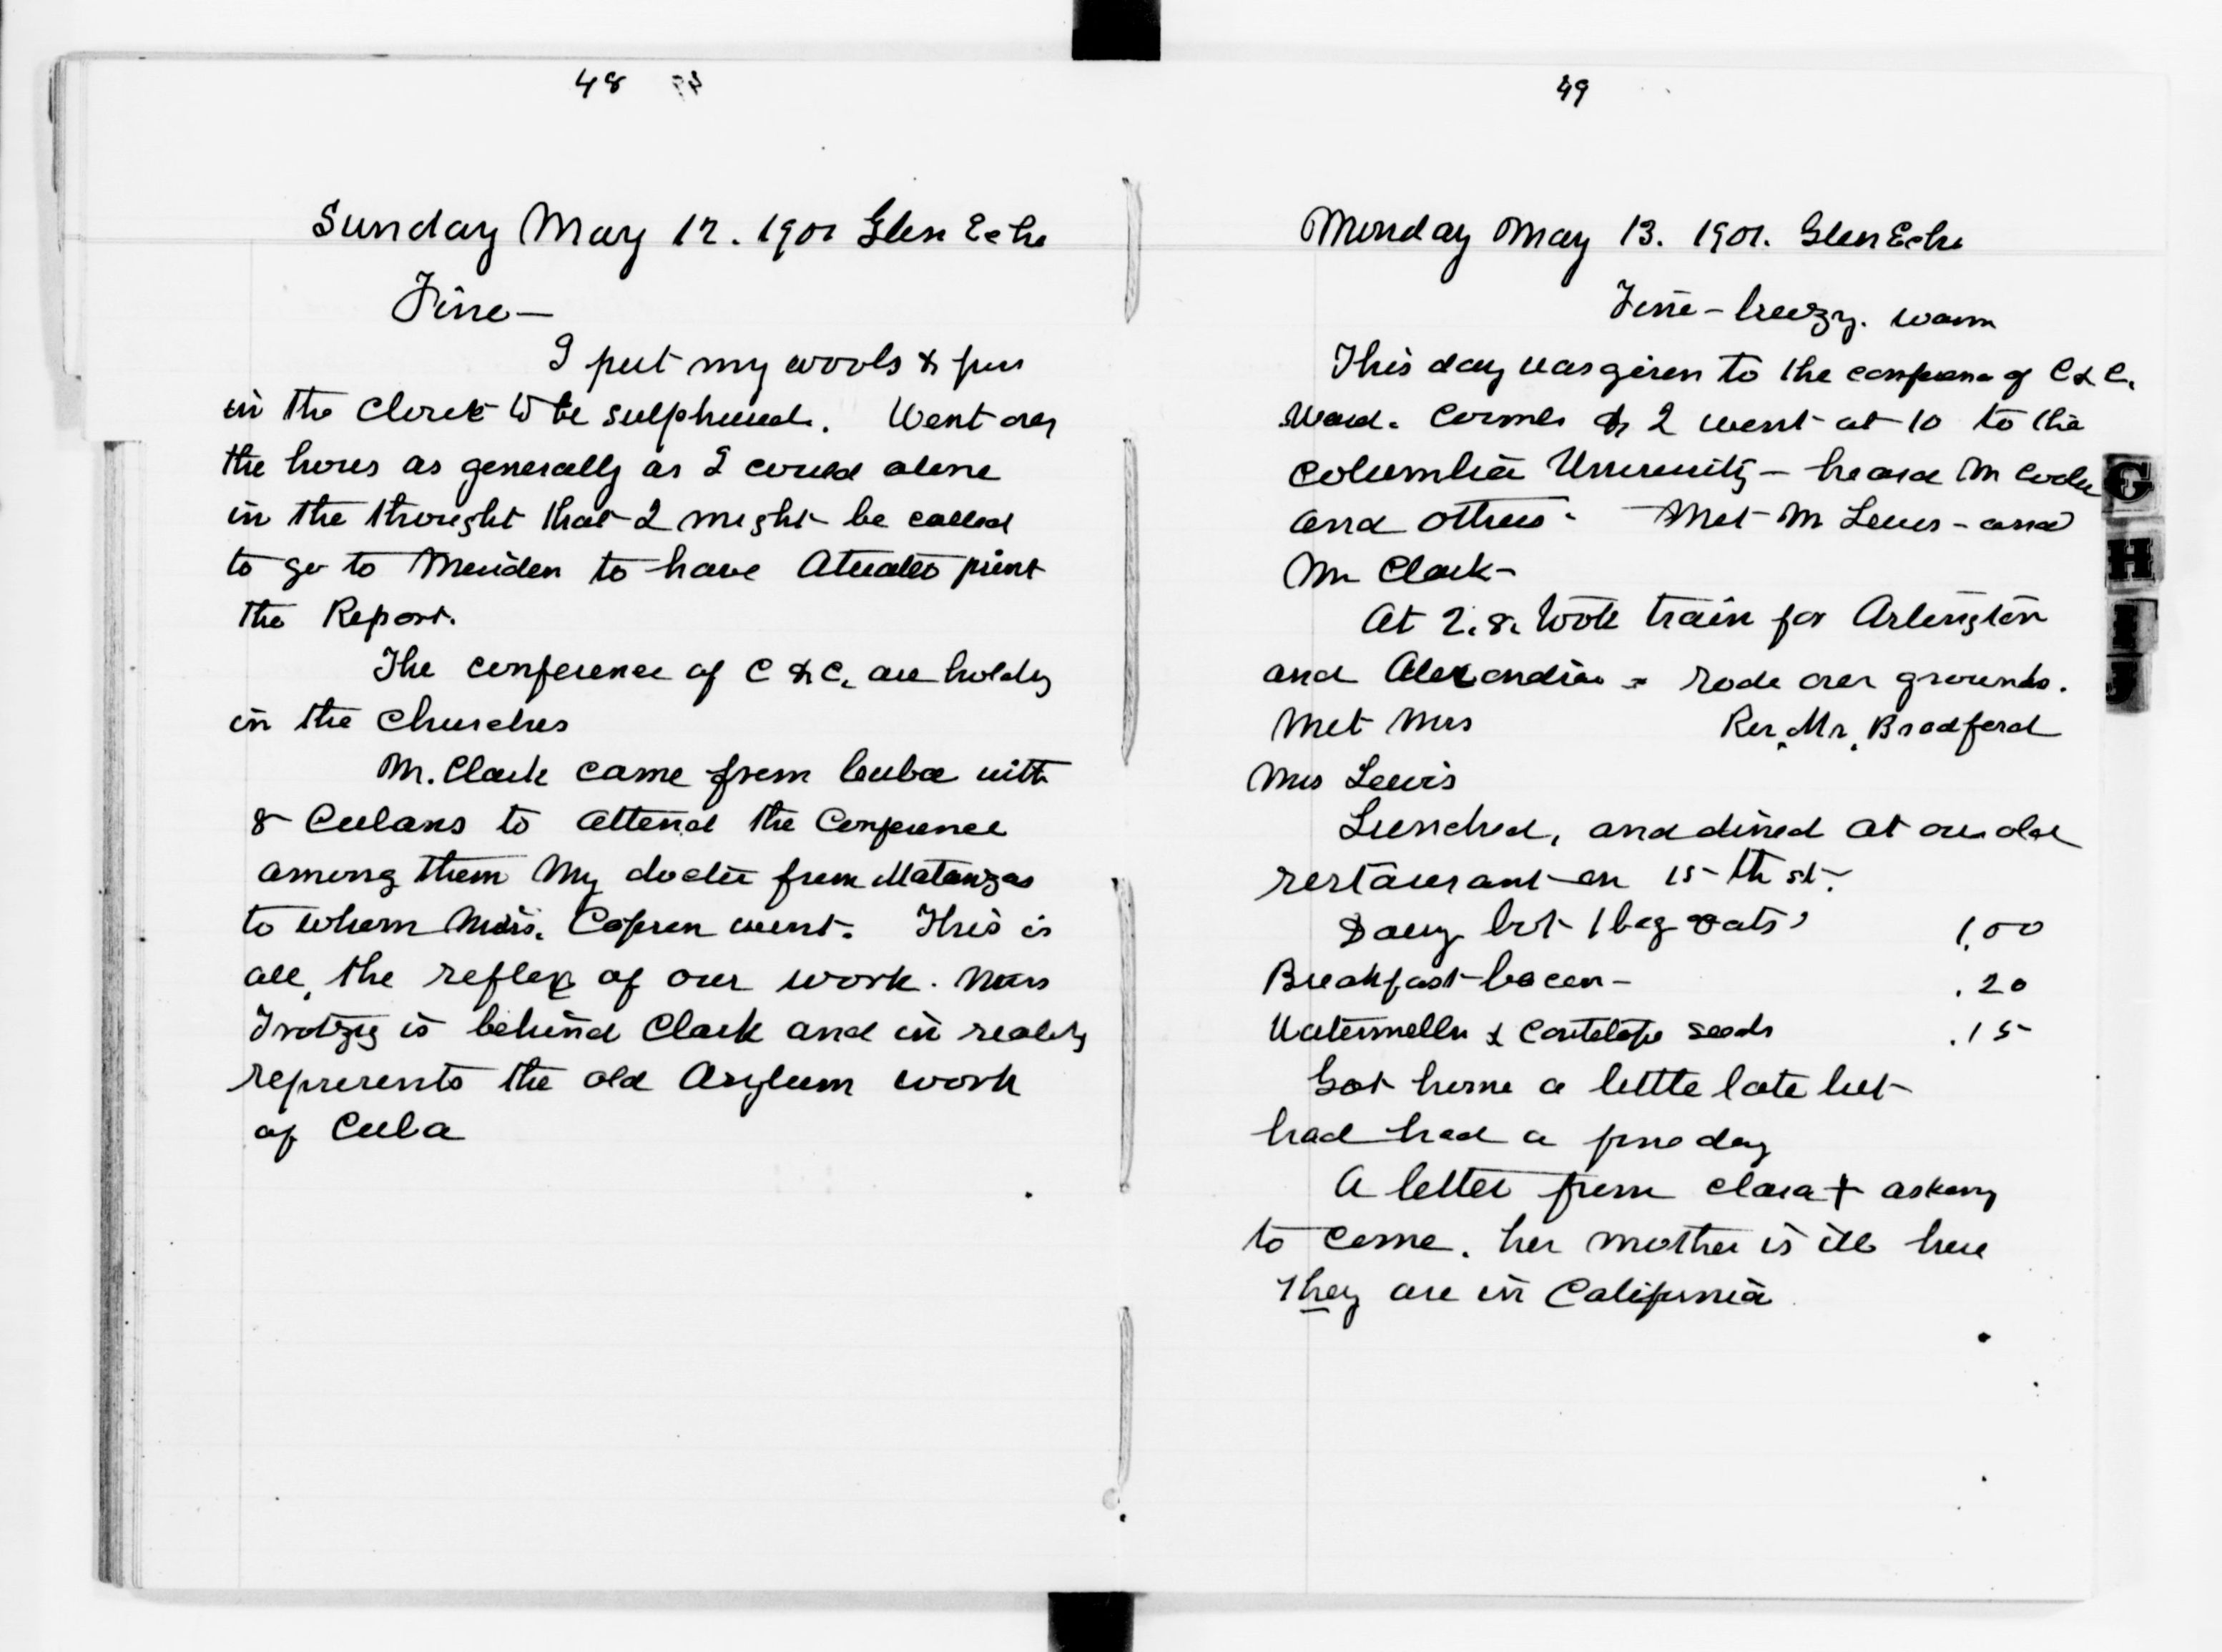 48
Sunday May 12. 1901 Glen Echo
Fine —
I put my wools & furs
in the closet to be sulphured. Went over
the house as generally as I could alone
in the thought that I might be called
to go to Meriden to have Atwater print
the Report.
The conference of C & C. are holdg
in the churches
Mr. Clark came from Cuba with
8 Cubans to attend the Conference
among them My doctor from Matanzas
to whom Miss. went. This is
all, the reflex of our work. Miss
is behind Clark and in reality
represents the old Asylum work
of Cuba
49
Monday May 13. 1901. Glen Echo
Fine - breezy. warm
This day was given to the of C & C.
Ward. & I went at 10 to the
Columbia University - heard Mr
and others - Met Mr Lewis - and
Mr Clark -
At 2.8. took train for Arlington
and Alexandria - rode over grounds.
Met Mrs Rev. Mr. Bradford
Mrs Lewis
Lunched, and dined at our old
restaurant on 15-th st.
bot 1 bag oats 1.00
Breakfast bacon - .20
Watermelln & Cantelope seeds .15
Got home a little late but
had had a fine day
A letter from Clara + asking
to come. her mother is ill here
They are in California
G
H
I
J